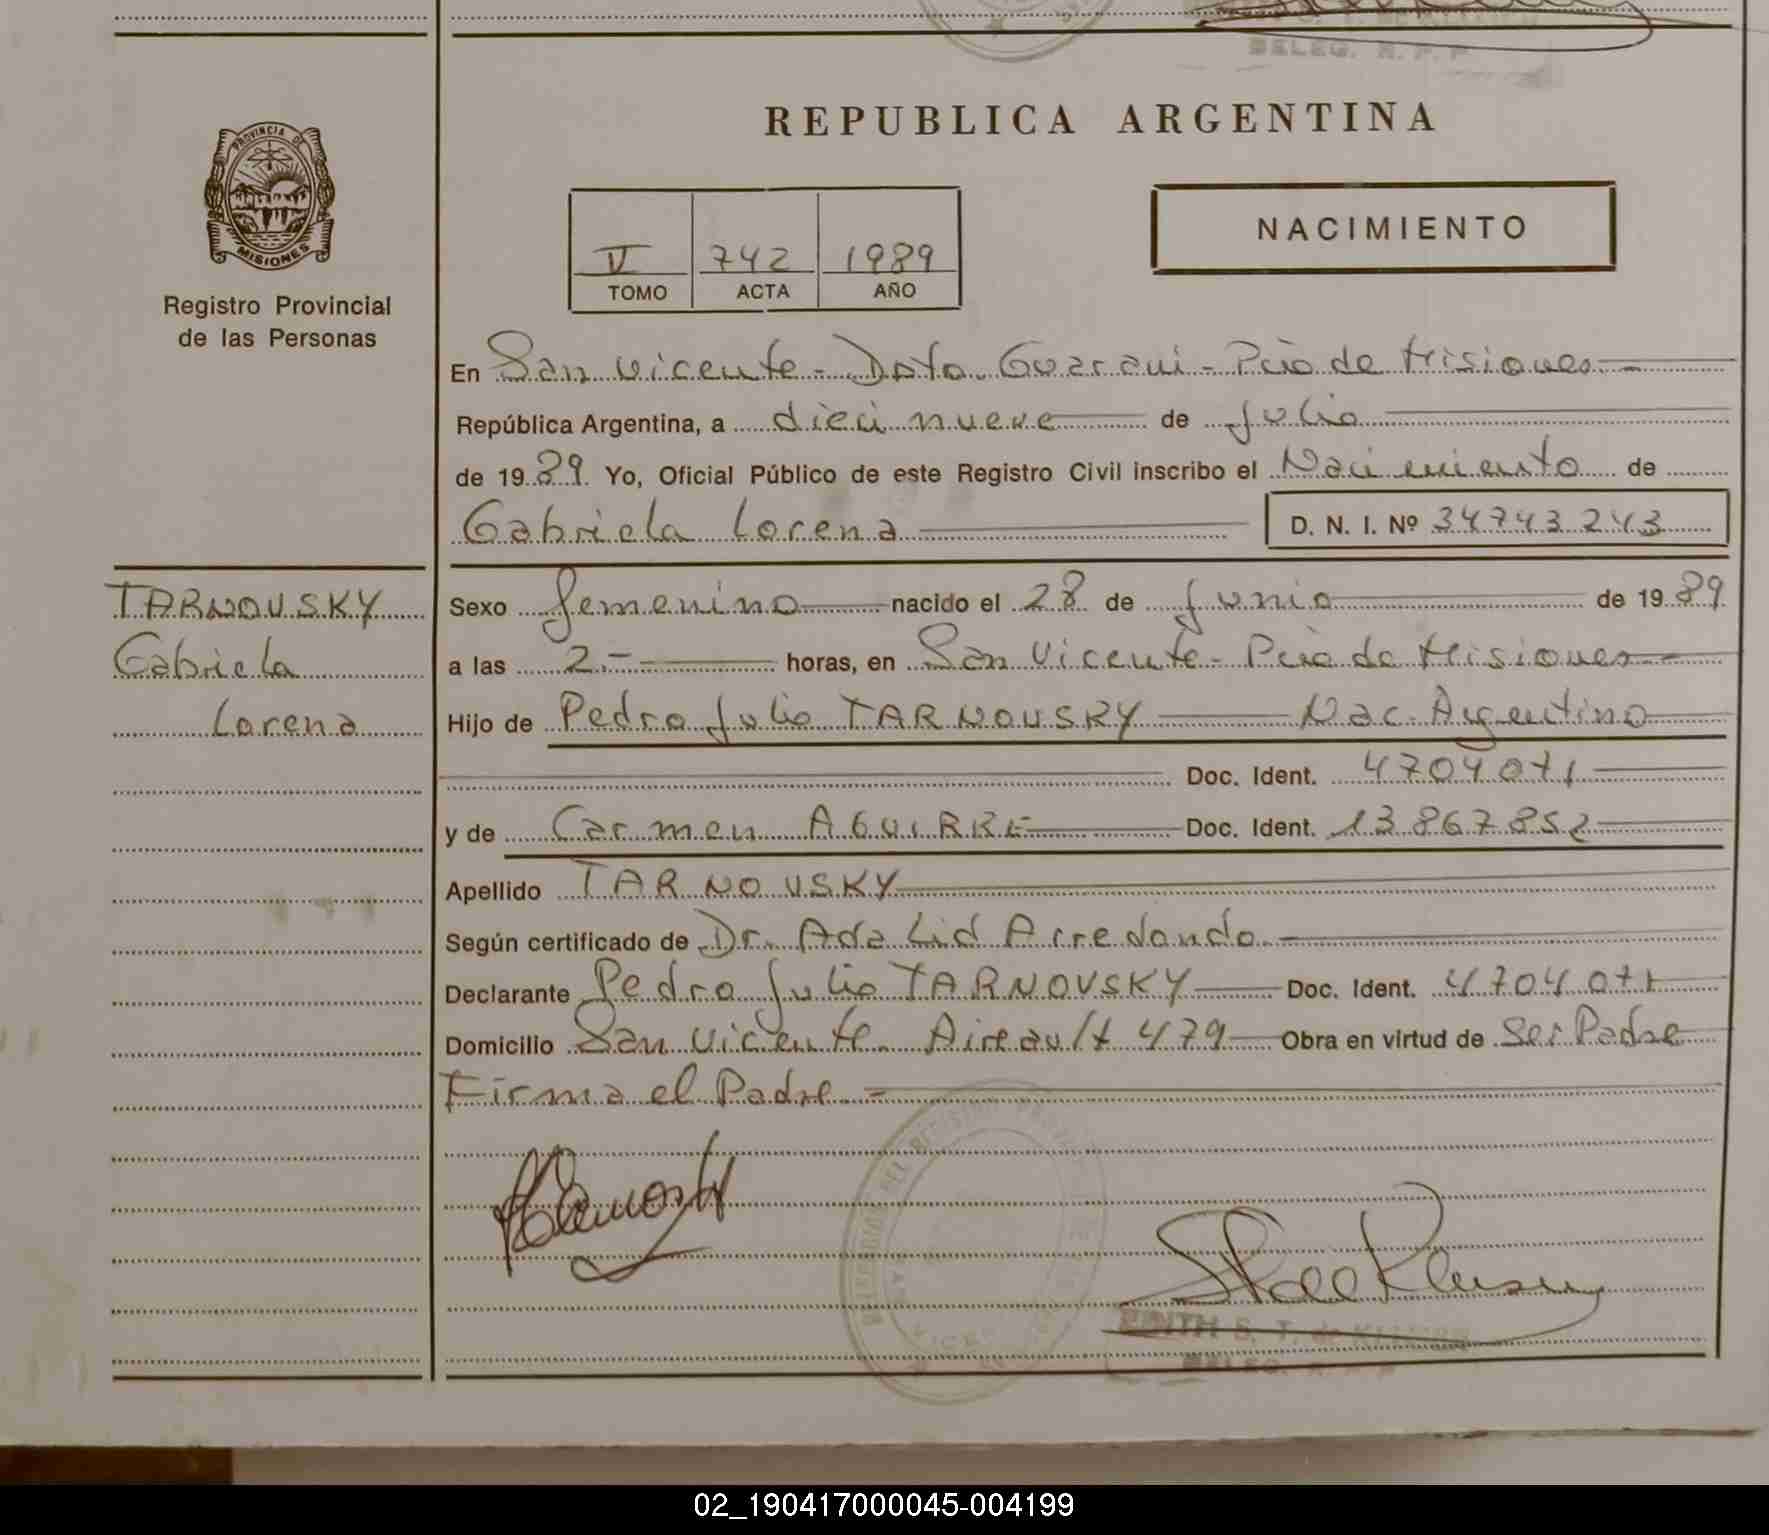 BELEG. R. P. P
REPUBLICA ARGENTINA
PROVINCIA DE
MISIONES
Registro Provincial
de las Personas
V 742 1989
TOMO ACTA AÑO
NACIMIENTO
En San Vicente - Dpto. Guarani - Pcia de Misiones -
República Argentina, a dieci nueve de Julio
de 1989 Yo, Oficial Público de este Registro Civil inscribo el Nacimiento de
Gabriela Lorena D. N. I. Nº 34743243
TARNOVSKY
Gabriela
Lorena
Sexo femenino nacido el 28 de Junio de 1989
a las 2.- horas, en San Vicente - Pcia de Misiones -
Hijo de Pedro Julio TARNOVSKY Nac. Argentino
Doc. Ident. 4704071
y de Carmen AGUIRRE Doc. Ident. 13867852
Apellido TARNOVSKY
Según certificado de Dr. Ada Lid Arredondo. -
Declarante Pedro Julio TARNOVSKY Doc. Ident. 4704071
Domicilio San Vicente. Aireault 479 Obra en virtud de Ser Padre
Firma el Padre. -
EDITH S. T. de KLEUSER
BELEG. R. P. P
02_190417000045-004199